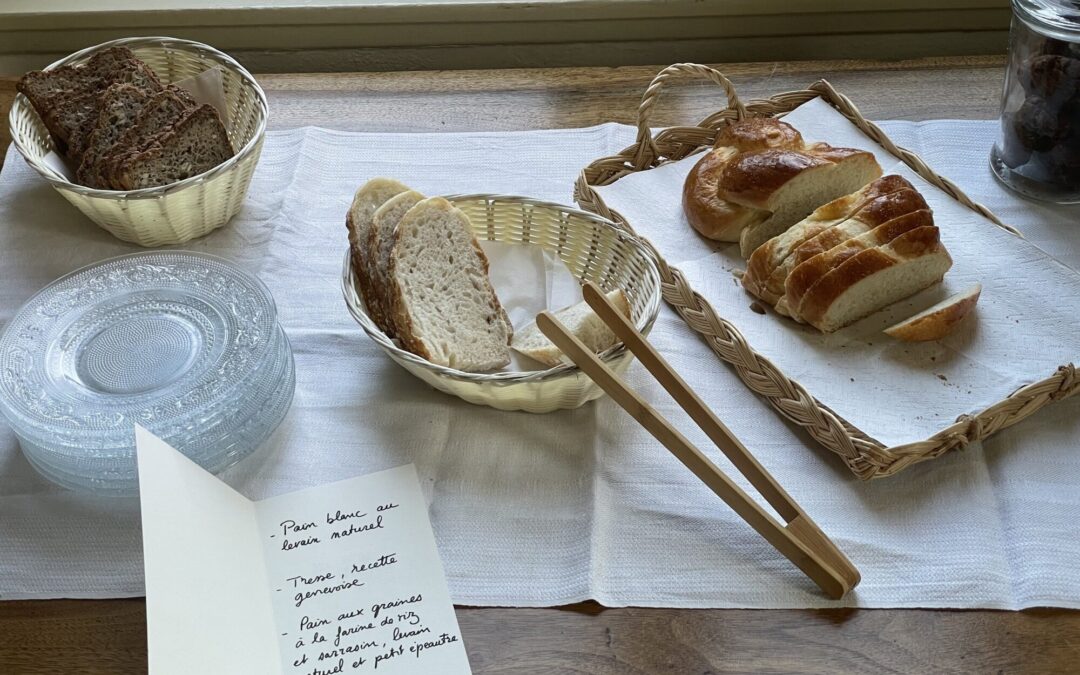 - Pain blanc au
levain naturel
- Tresse, recette
genevoise
- Pain aux graines
à la farine de riz
et sarrasin, levain
naturel et petit épeautre